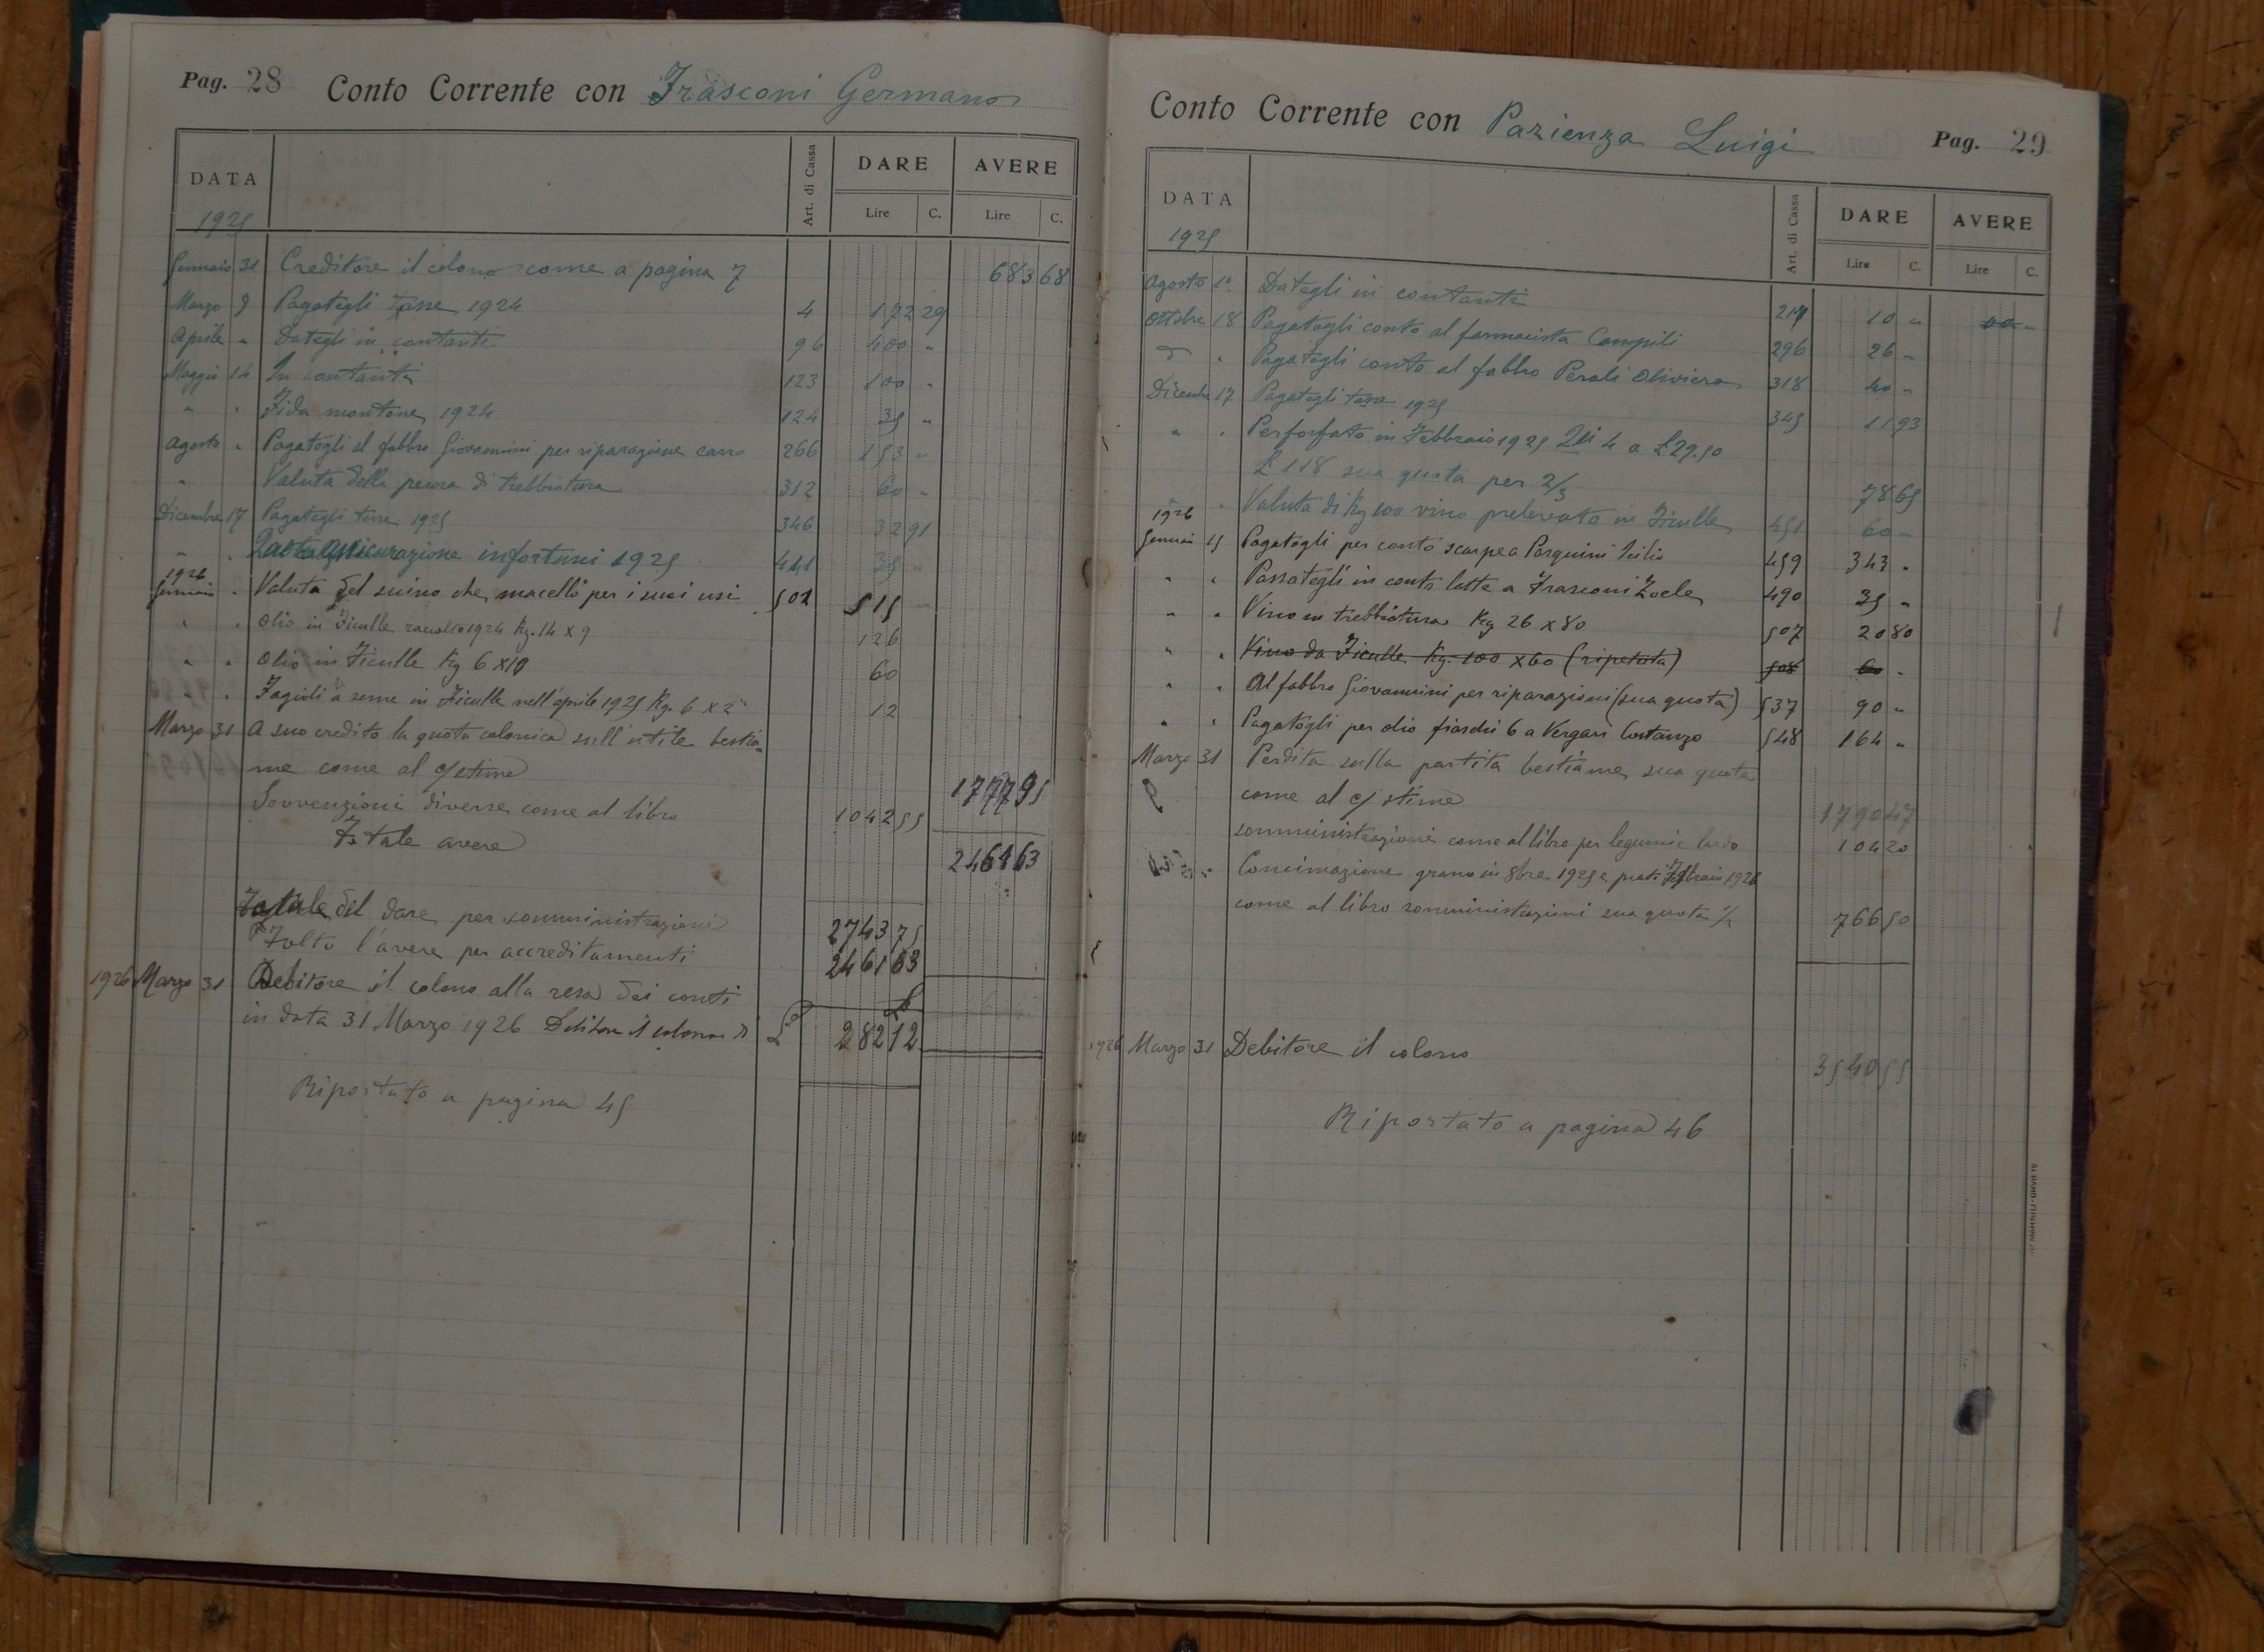 Pag. 28 Conto Corrente con Frasconi Germano
DATA Art. di Cassa DARE AVERE
Lire C. Lire C.
1925
Gennaio 31 Creditore il colono come a pagina 7 683 68
Marzo 9 Pagategli tasse 1924 4 172 29
Aprile " Dategli in contanti 96 400 "
Maggio 14 In contanti 123 100 "
" " Fida montone 1924 124 35 "
Agosto " Pagategli al fabbro Giovannini per riparazione carro 266 153 "
" Valuta della pecora di trebbiatura 312 60 "
Dicembre 17 Pagategli tasse 1925 346 32 91
" " Quota assicurazione infortuni 1925 441 35 "
1926
Gennaio " Valuta del suino che macellò per i suoi usi 502 515
" " Olio in Ficulle raccolto 1924 Kg. 14 x 9 126
" " Olio in Ficulle Kg 6 x 10 60
" " Fagioli a seme in Ficulle nell'aprile 1925 Kg. 6 x 2 " 12
Marzo 31 A suo credito la quota colonica sull'utile bestia-
me come al c/ stime 1777 95
Sovvenzioni diverse come al libro 1042 55
Totale avere 2461 63
Totale del dare per somministrazioni 2743 75
Tolto l'avere per accreditamenti 2461 63
1926 Marzo 31 Debitore il colono alla resa dei conti
in data 31 Marzo 1926 Debitore il colono di L 282 12
Riportato a pagina 45
Conto Corrente con Pazienza Luigi Pag. 29
DATA Art. di Cassa DARE AVERE
Lire C. Lire C.
1925
Agosto 1° Dategli in contanti 217 10 "
Ottobre 18 Pagategli conto al farmacista Campili 296 26 "
" Pagategli conto al fabbro Perali Oliviero 318 40 "
Dicembre 17 Pagategli tasse 1925 345 11 93
" " Perfosfato in Febbraio 1925 Qli 4 a £ 29.50
£ 118 sua quota per 2/3 78 65
" " Valuta di Kg 100 vino prelevato in Ficulle 451 60 "
1926
Gennaio 15 Pagategli per conto scarpe a Pasquini 459 343 "
" " Passategli in conto latte a Frasconi 490 35 "
" " Vino in trebbiatura Kg 26 x 80 507 20 80
" " Vino da Ficulle Kg. 100 x 60 (ripetuta) 508 60 "
" " Al fabbro Giovannini per riparazioni (sua quota) 537 90 "
" " Pagategli per olio fiaschi 6 a Vergari Costanzo 548 164 "
Marzo 31 Perdita sulla partita bestiame sua quota
come al c/ stime 1790 47
somministrazioni come al libro per legumi e lardo 104 20
Concimazione grano in 8bre 1925 e prati Febbraio 1926
come al libro somministrazioni sua quota 1/2 766 50
1926 Marzo 31 Debitore il colono 3540 55
Riportato a pagina 46